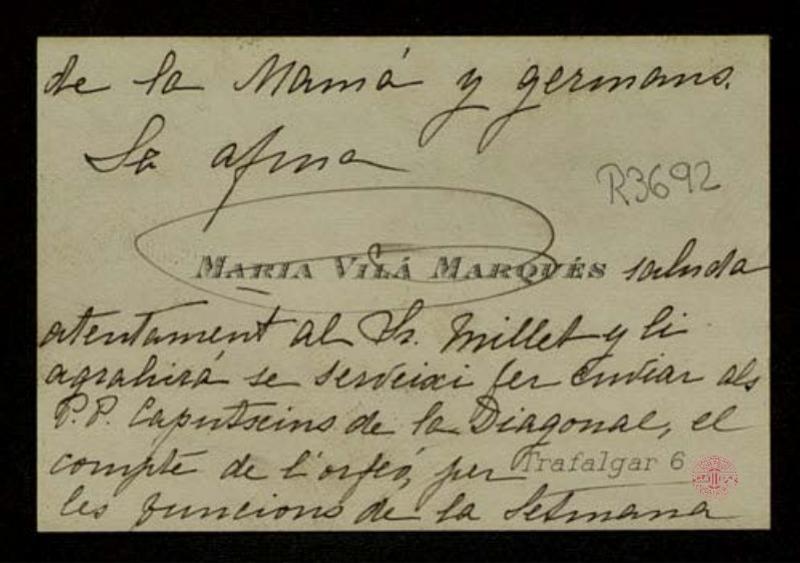 de la Mamá y germans.
La afma
R3692
MARIA VILÁ MARQUÉS saluda
atentament al Sr. Millet y li
agrahirá se serveixi fer enviar als
P.P. Caputxins de la Diagonal, el
compte de l'orfeó, per Trafalgar 6
les funcions de la Setmana